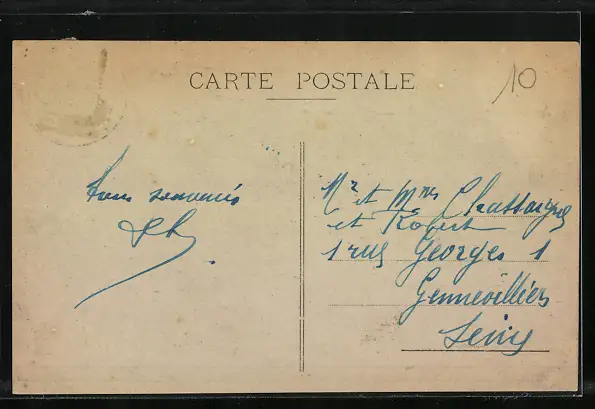 CARTE POSTALE
10
bons souvenirs
Mr et Mme Chattaigne
et Robert
1 rue Georges 1
Gennevilliers
Seine